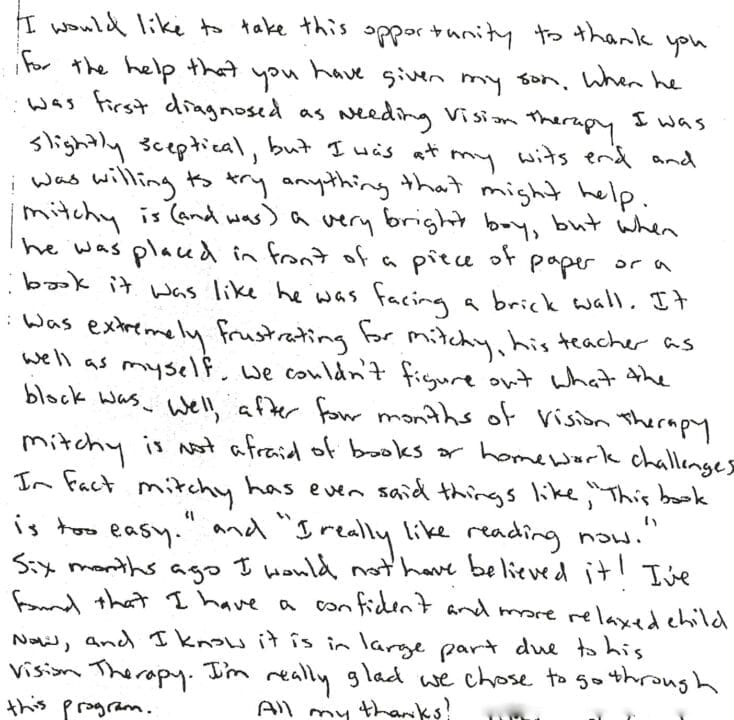 I would like to take this opportunity to thank you
for the help that you have given my son. When he
was first diagnosed as Needing Vision Therapy I was
slightly sceptical, but I was at my wits end and
was willing to try anything that might help.
Mitchy is (and was) a very bright boy, but when
he was placed in front of a piece of paper or a
book it was like he was facing a brick wall. It
was extremely frustrating for mitchy, his teacher as
well as myself. We couldn't figure out what the
block was. Well, after four months of Vision Therapy
mitchy is not afraid of books or homework challenges
In fact mitchy has even said things like, "This book
is too easy." and "I really like reading now."
Six months ago I would not have believed it! I've
found that I have a confident and more relaxed child
Now, and I know it is in large part due to his
Vision Therapy. I'm really glad we chose to go through
this program. All my thanks!